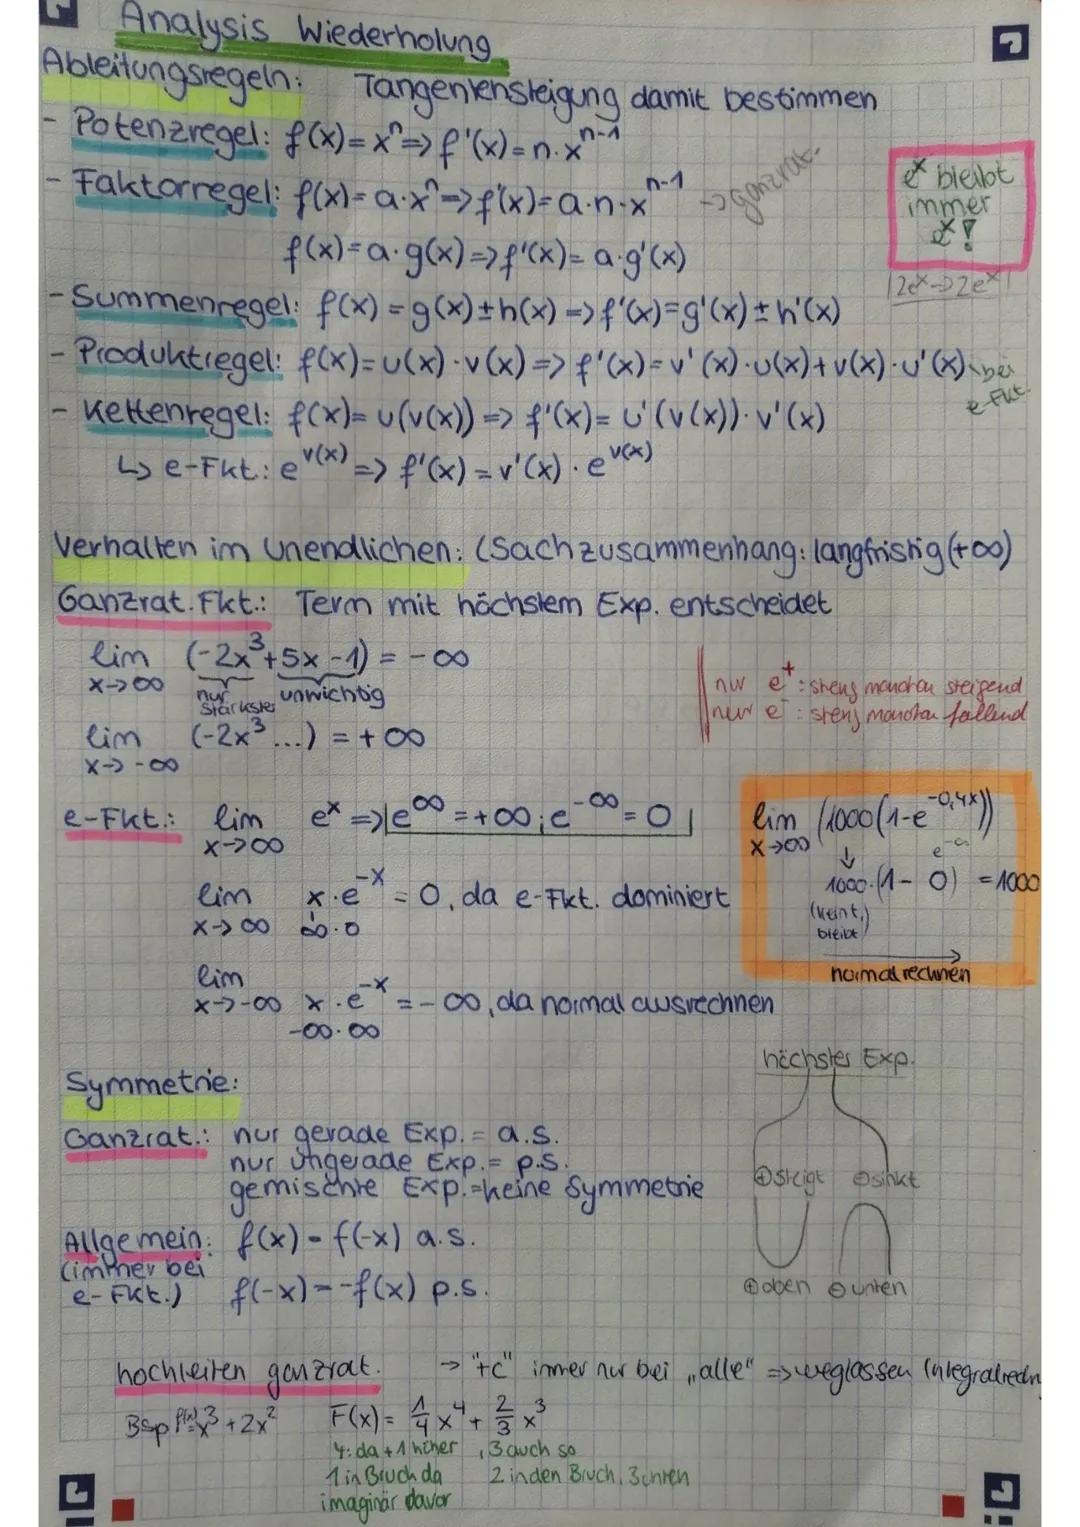 Analysis Wiederholung
Ableitungsregeln: Tangentensteigung damit bestimmen
- Potenzregel: f(x)=xⁿ => f'(x)=n·xⁿ⁻¹
- Faktorregel: f(x)=a·xⁿ => f'(x)=a·n·xⁿ⁻¹ -> ganzrat.
f(x)=a·g(x) => f'(x)=a·g'(x)
eˣ bleibt
immer
eˣ!
2eˣ -> 2eˣ
- Summenregel: f(x)=g(x)±h(x) => f'(x)=g'(x)±h'(x)
- Produktregel: f(x)=u(x)·v(x) => f'(x)=v'(x)·u(x)+v(x)·u'(x) bei
e-Fkt.
- Kettenregel: f(x)=u(v(x)) => f'(x)=u'(v(x))·v'(x)
↳ e-Fkt.: e^v(x) => f'(x)=v'(x)·e^v(x)
Verhalten im Unendlichen: (Sachzusammenhang: langfristig (+∞)
Ganzrat. Fkt.: Term mit höchstem Exp. entscheidet
lim (-2x³+5x-1) = -∞
x->∞ nur stärkster unwichtig
lim (-2x³...) = +∞
x->-∞
nur e⁺: streng monoton steigend
nur e⁻: streng monoton fallend
e-Fkt.: lim eˣ => |e^∞ = +∞; e^-∞ = 0|
x->∞
lim x·e⁻ˣ = 0, da e-Fkt. dominiert
x->∞ ∞·0
lim
x->-∞ x·e⁻ˣ = -∞, da normal ausrechnen
-∞·∞
lim (1000(1-e^-0,4x))
x->∞ ↓ e^-∞
1000·(1- 0) = 1000
(kein t,)
bleibt
normal rechnen
Symmetrie:
Ganzrat.: nur gerade Exp. = a.s.
nur ungerade Exp. = p.s.
gemischte Exp. = keine Symmetrie
Allgemein: f(x) = f(-x) a.s.
(immer bei
e-Fkt.) f(-x) = -f(x) p.s.
höchster Exp.
⊕ steigt ⊖ sinkt
⊕ oben ⊖ unten
hochleiten ganzrat. -> "+c" immer nur bei „alle" => weglassen Integralrechn
Bsp f(x)=x³+2x² F(x)= 1/4 x⁴ + 2/3 x³
4: da +1 höher, 3 auch so
1 in Bruch da 2 in den Bruch, 3 unten
imaginär davor